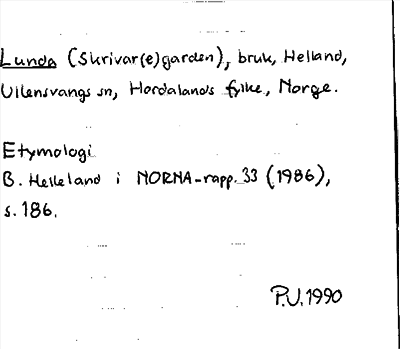 Lunda (Skrivar(e)garden), bruk, Helland,
Ullensvangs sn, Hordalands fylke, Norge.
Etymologi
B. Helleland i NORNA-rapp. 33 (1986),
s. 186.
P.U. 1990